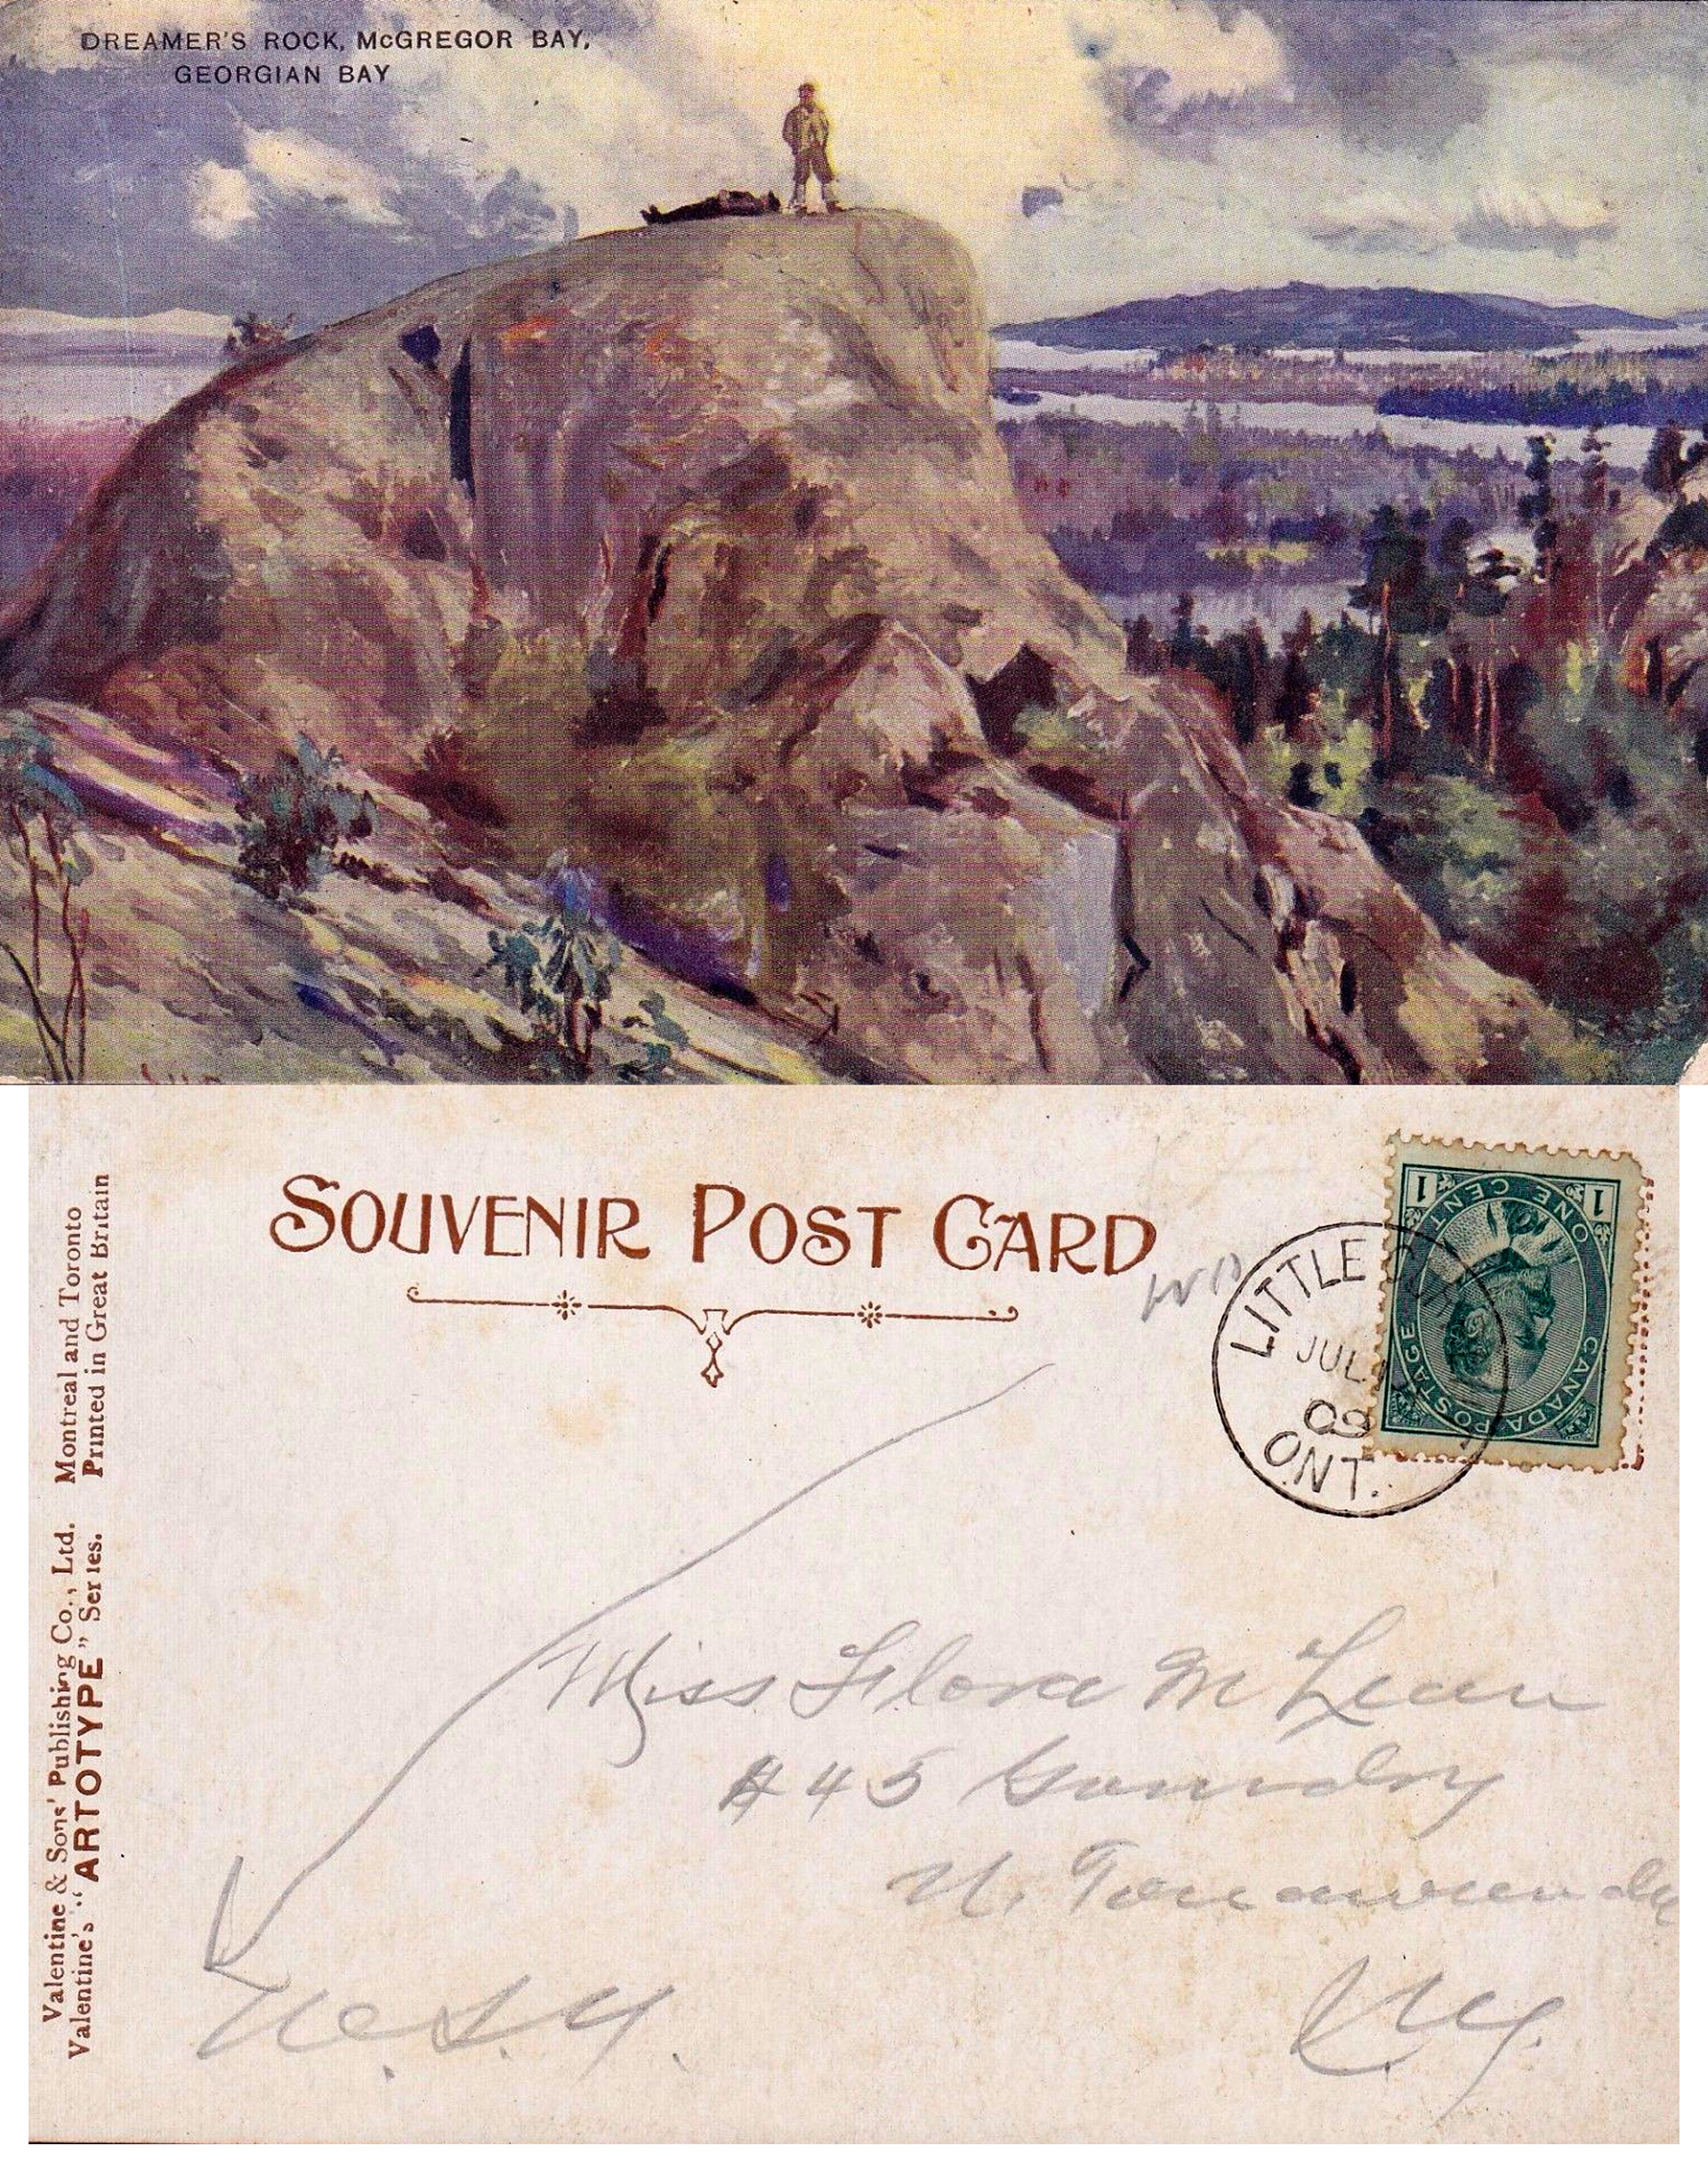 DREAMER'S ROCK, McGREGOR BAY,
GEORGIAN BAY
SOUVENIR POST CARD
Valentine & Sons' Publishing Co., Ltd. Montreal and Toronto
Valentine's "ARTOTYPE" Series. Printed in Great Britain
ONE CENT
1 1
CANADA POSTAGE
LITTLE
JUL
09
ONT.
Miss Flora McLean
#45
N. Tonawanda
N.Y.